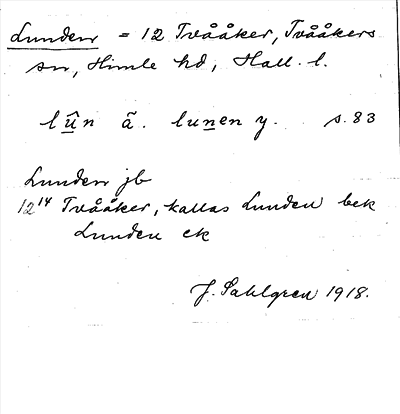 Lunden = 12 Tvååker, Tvååkers
sn, Himle hd, Hall. l.
lûn ã. lunen y. s. 83
Lunden jb
12¹⁴ Tvååker, kallas Lunden bek
Lunden ek
J. Sahlgren 1918.